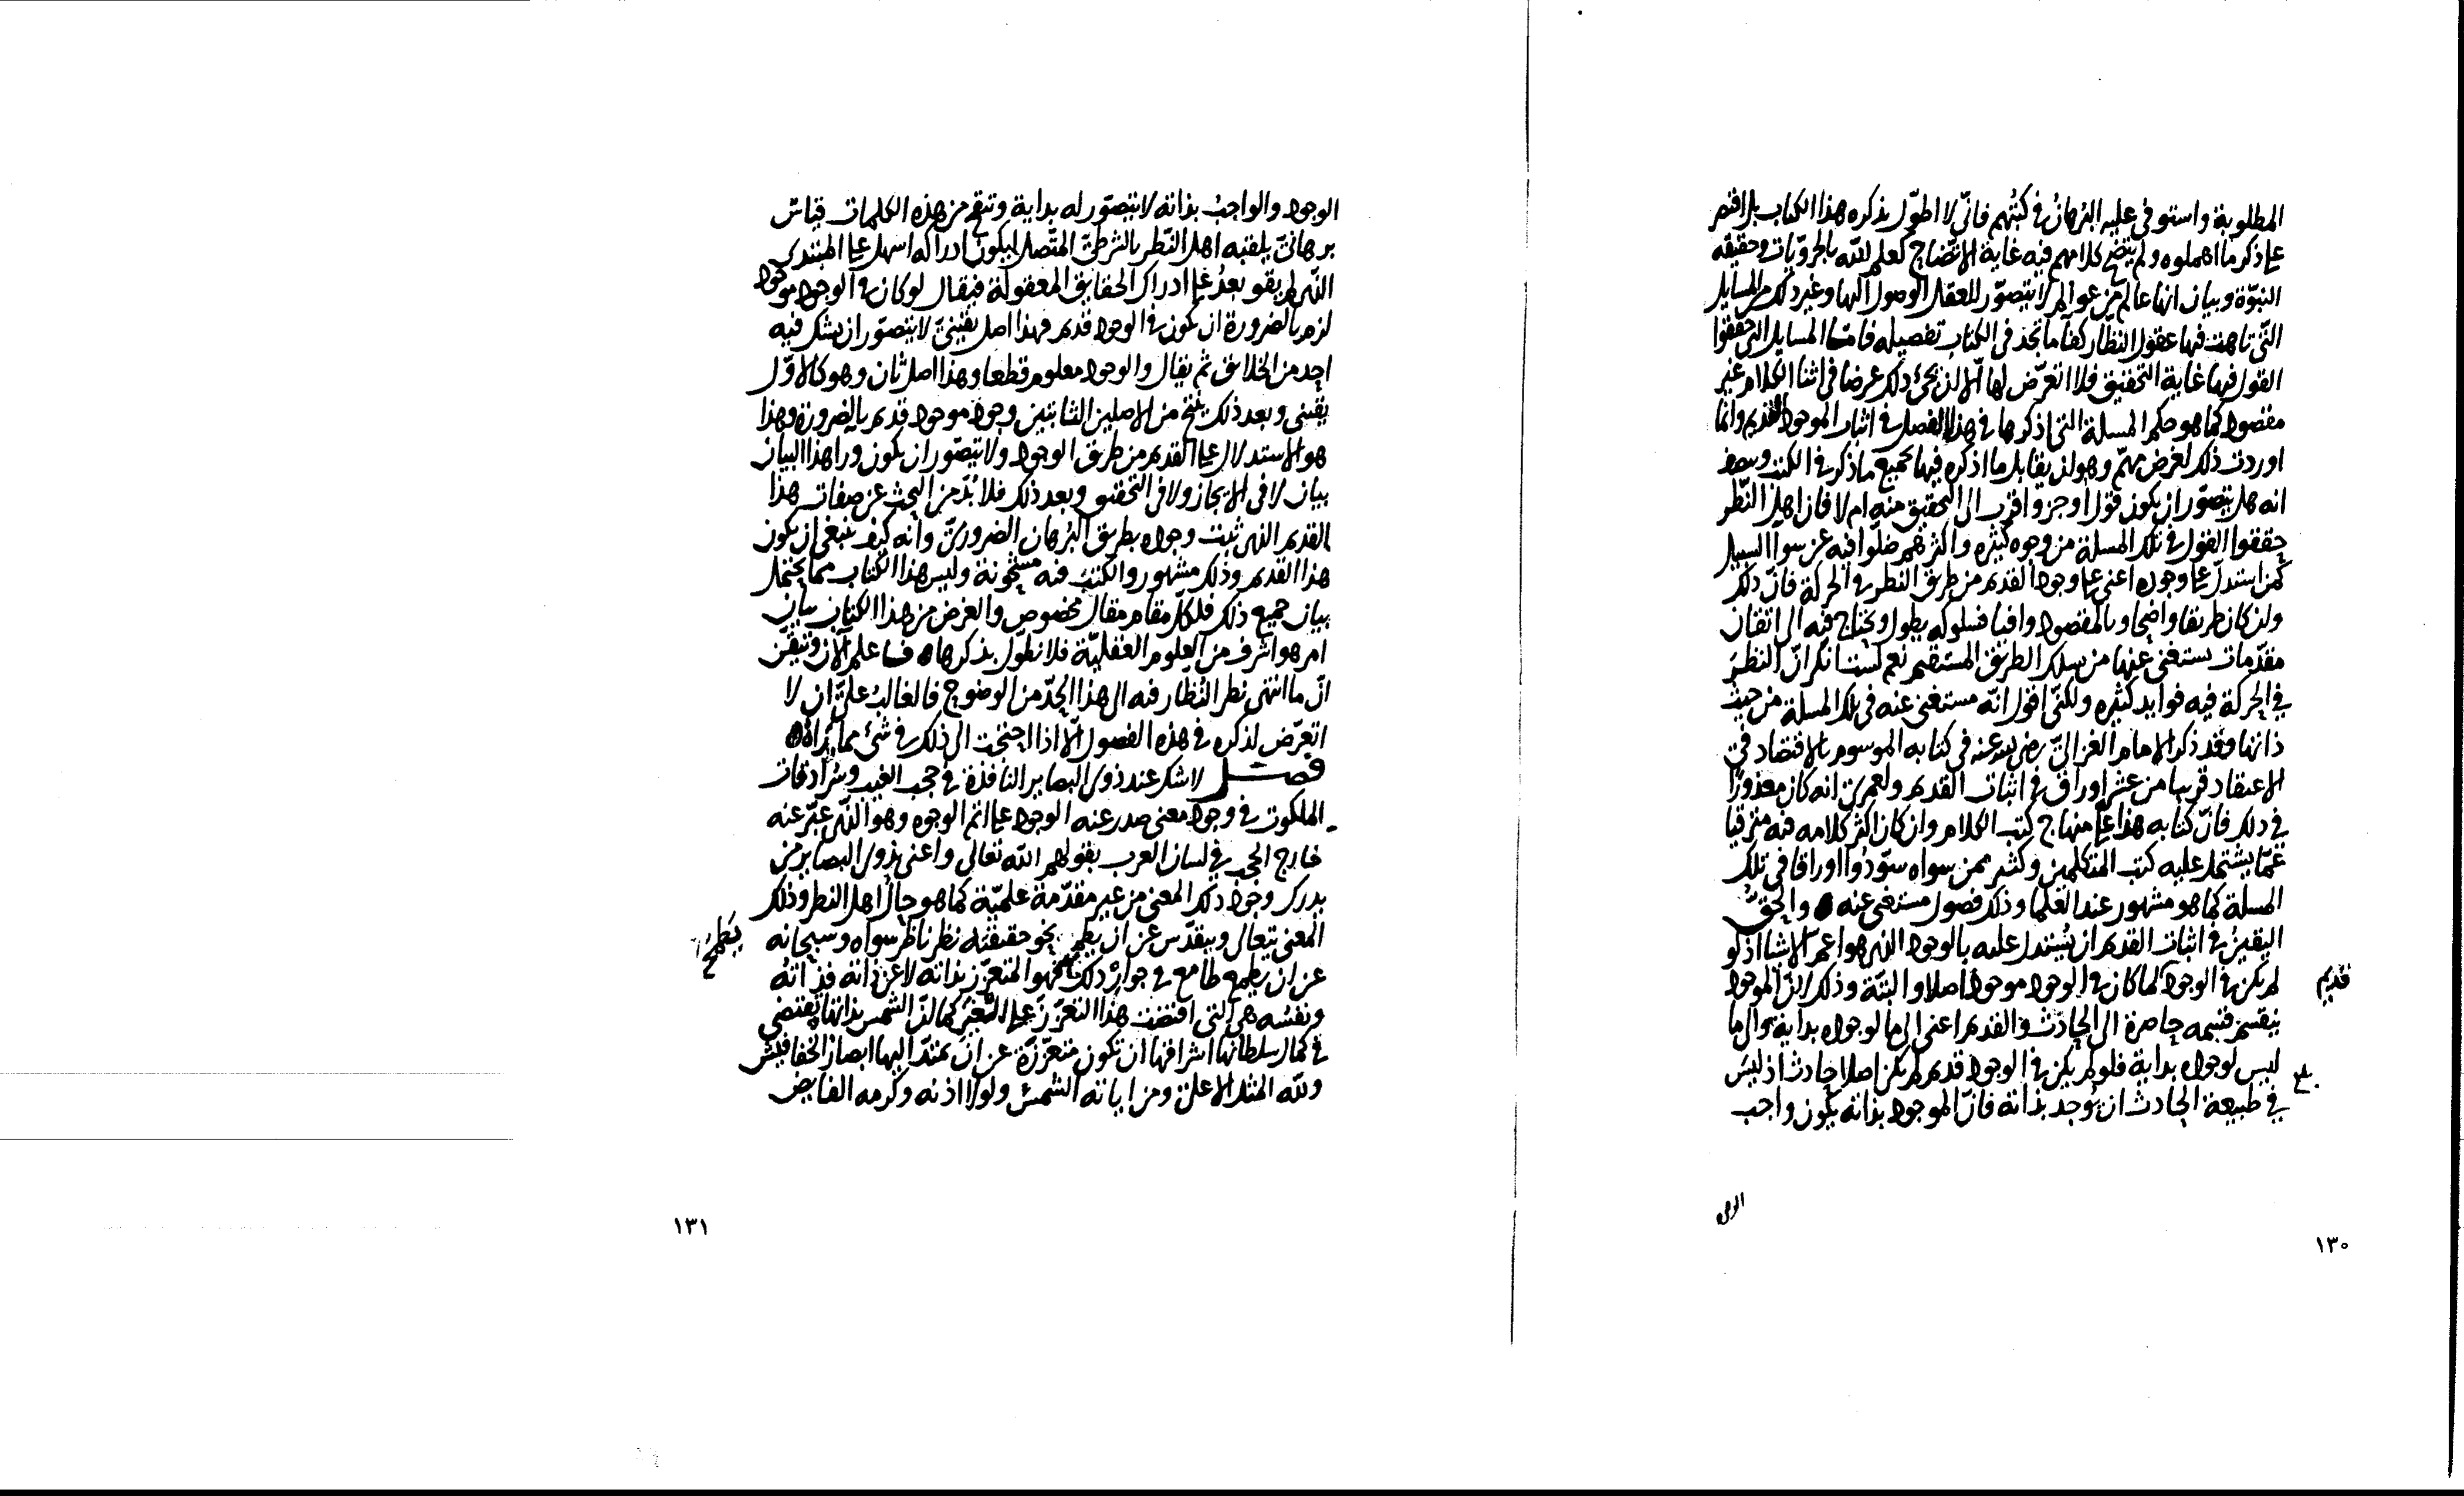 المطلوبة واستوفى عليه البرهان في كتبهم فاني لا اطول بذكره هذا الكتاب بل اقتصر
على ذكر ما اهملوه ولم يتضح كلامهم فيه غاية الاتضاح كعلم الله بالجزويات وحقيقه
النبوة وبيان انها عالم من عوالم لا يتصور للعقل الوصول اليها وغير ذلك من المسايل
التي تاهت فيها عقول النظار كما ما تجد في الكتاب تفصيله فاما المسايل التي حققوا
القول فيها غاية التحقيق فلا اتعرض لها الا لان يجئ ذلك عرضا في اثنا الكلام غير
مقصود كما هو حكم المسلة التي اذكرها في هذا الفصل في اثبات الموجود القديم وانما
اوردت ذلك لغرض مهم وهو ان يقابل ما اذكره فيها بجميع ما ذكر في الكتب
انه هل يتصور ان يكون قول اوجز واقرب الى التحقيق منه ام لا فان اهل النظر
حققوا القول في تلك المسلة من وجوه كثيره واكثرهم ضلوا فيه عن سوا السبيل
كمن استدل على وجوده اعني على وجود القديم من طريق النظر في الحركة فان ذلك
وان كان طريقا واضحا وبالمقصود وافيا فسلوكه يطول ويحتاج فيه الى اتقان
مقدمات يستغنى عنها من سلك الطريق المستقيم نعم لست انكر ان النظر
في الحركة فيه فوايد كثيره ولكني اقول انه مستغنى عنه في تلك المسلة من حيث
ذاتها وقد ذكر الامام الغزالي رضي الله عنه في كتابه الموسوم بالاقتصاد في
الاعتقاد قريبا من عشر اوراق في اثبات القديم ولعمري انه كان معذورا
في ذلك فان كتابه هذا على منهاج كتب الكلام وان كان اكثر كلامه فيه مترقيا
عما يشتمل عليه كتب المتكلمين وكثير ممن سواه سودوا اوراقا في تلك
المسلة كما هو مشهور عند العلما وذلك فضول مستغنى عنه ۞ والحق
اليقين في اثبات القديم ان يستدل عليه بالوجود الذي هو اعم الاشيا اذ لو
لم يكن في الوجود لما كان في الوجود موجود اصلا والبتة وذلك لان الموجود
قديم
ينقسم قسمه حاصرة الى الحادث والقديم اعني الى ما لوجوده بداية والى ما
ليس لوجوده بداية فلو لم يكن في الوجود قديم لم يكن اصلا حادث اذ ليس
في طبيعة الحادث ان يوجد بذاته فان الموجود بذاته يكون واجب
١٣٠
الوجود والواجب بذاته لا يتصور له بداية وينتج من هذه الكلمات قياس
برهاني يلقبه اهل النظر بالشرطي المتصل ليكون ادراكه اسهل على المبتدي
الذي لم يقو بعد على ادراك الحقايق المعقولة فيقال لو كان في الوجود موجود
لزم بالضرورة ان يكون في الوجود قديم فهذا اصل يقيني لا يتصور ان يشك فيه
احد من الخلائق ثم يقال والوجود معلوم قطعا وهذا اصل ثان وهو كالاول
يقيني وبعد ذلك ينتج من الاصلين الثابتين وجود موجود قديم بالضرورة وهذا
هو الاستدلال على القديم من طريق الوجود ولا يتصور ان يكون ورا هذا البيان
بيان لا في الايجاز ولا في التحقيق وبعد ذلك فلا بد من البحث عن صفات هذا
القديم الذي ثبت وجوده بطريق البرهان الضروري وانه كيف ينبغي ان يكون
هذا القديم وذلك مشهور والكتب فيه مشحونة وليس هذا الكتاب مما يحتمل
بيان جميع ذلك فلكل مقام مقال مخصوص والغرض من هذا الكتاب بيان
امر هو اشرف من العلوم العقلية فلا نطول بذكرها ۞ فاعلم الان وتيقن
ان ما انتهى نظر النظار فيه الى هذا الحد من الوضوح فالغالب علي ان لا
اتعرض لذكره في هذه الفصول الا اذا احتجت الى ذلك في شئ مما اراه ۞
فصل لا شك عند ذوي البصاير النافذة في حجب الغيب وسرادقات
الملكوت في وجود معنى صدر عنه الوجود على اتم الوجوه وهو الذي عبر عنه
خارج الحجب في لسان العرب بقولهم الله تعالى واعني بذوي البصاير من
يدرك وجود ذلك المعنى من غير مقدمة علمية كما هو حال اهل النظر وذلك
المعنى يتعالى ويتقدس عن ان يطمح نحو حقيقته نظر ناظر سواه وسبحانه
يطمح
عن ان يطمع طامع في جواز ذلك فهو المتعزز بذاته لا عن ذاته فذاته
ونفسه هي التي اقتضت هذا التعزز على الغير كما ان الشمس بذاتها يقتضي
في كمال سلطانها اشراقها ان تكون متعززة عن ان يمتد اليها ابصار الخفافيش
ولله المثل الاعلى ومن اياته الشمس ولولا اذنه وكرمه الفايض
١٣١